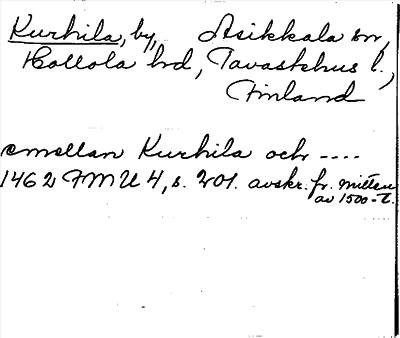 Kurhila, by, Asikkala sn,
Hollola hd, Tavastehus l.,
Finland
emellan Kurhila och ----
1462 FMU 4, s. 201. avskr. fr. mitten
av 1500-t.